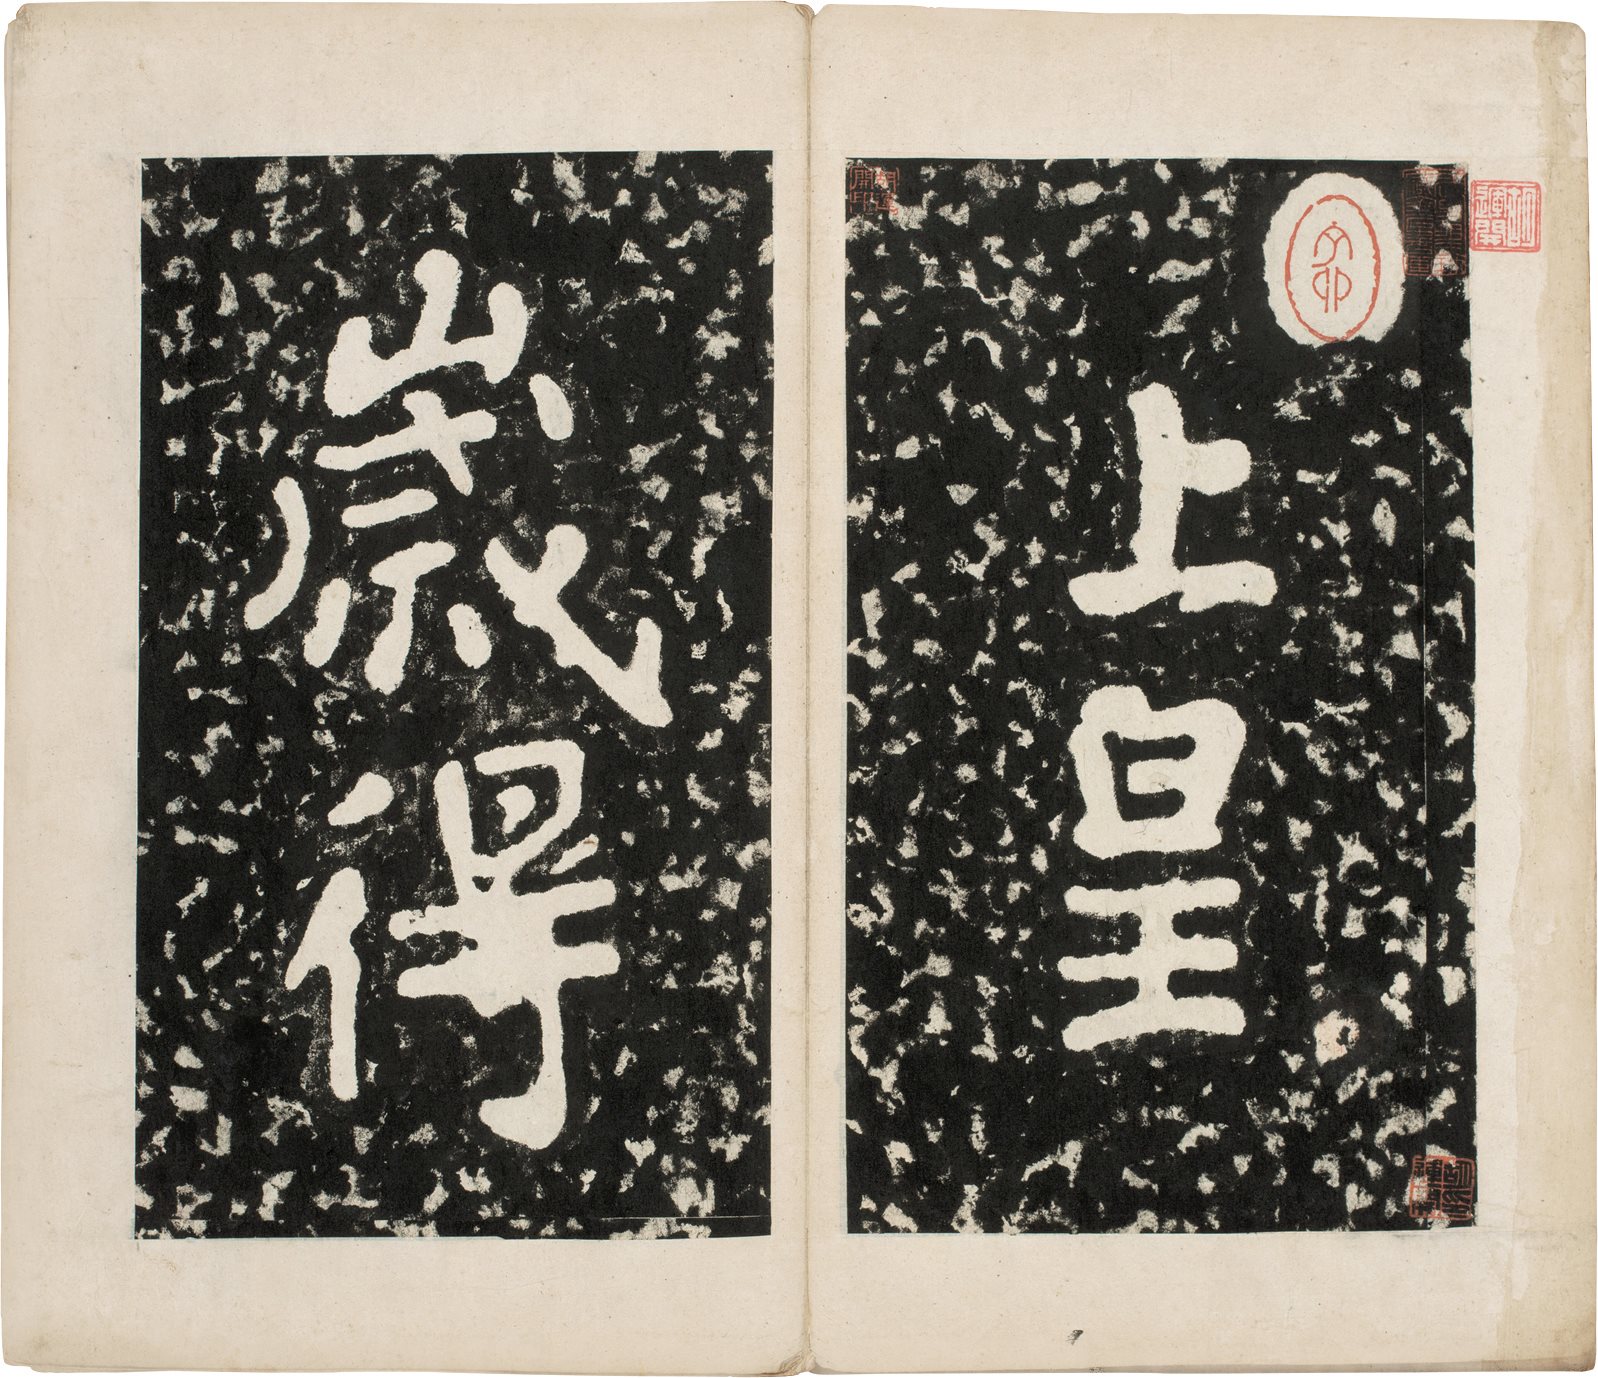 上皇
歲得